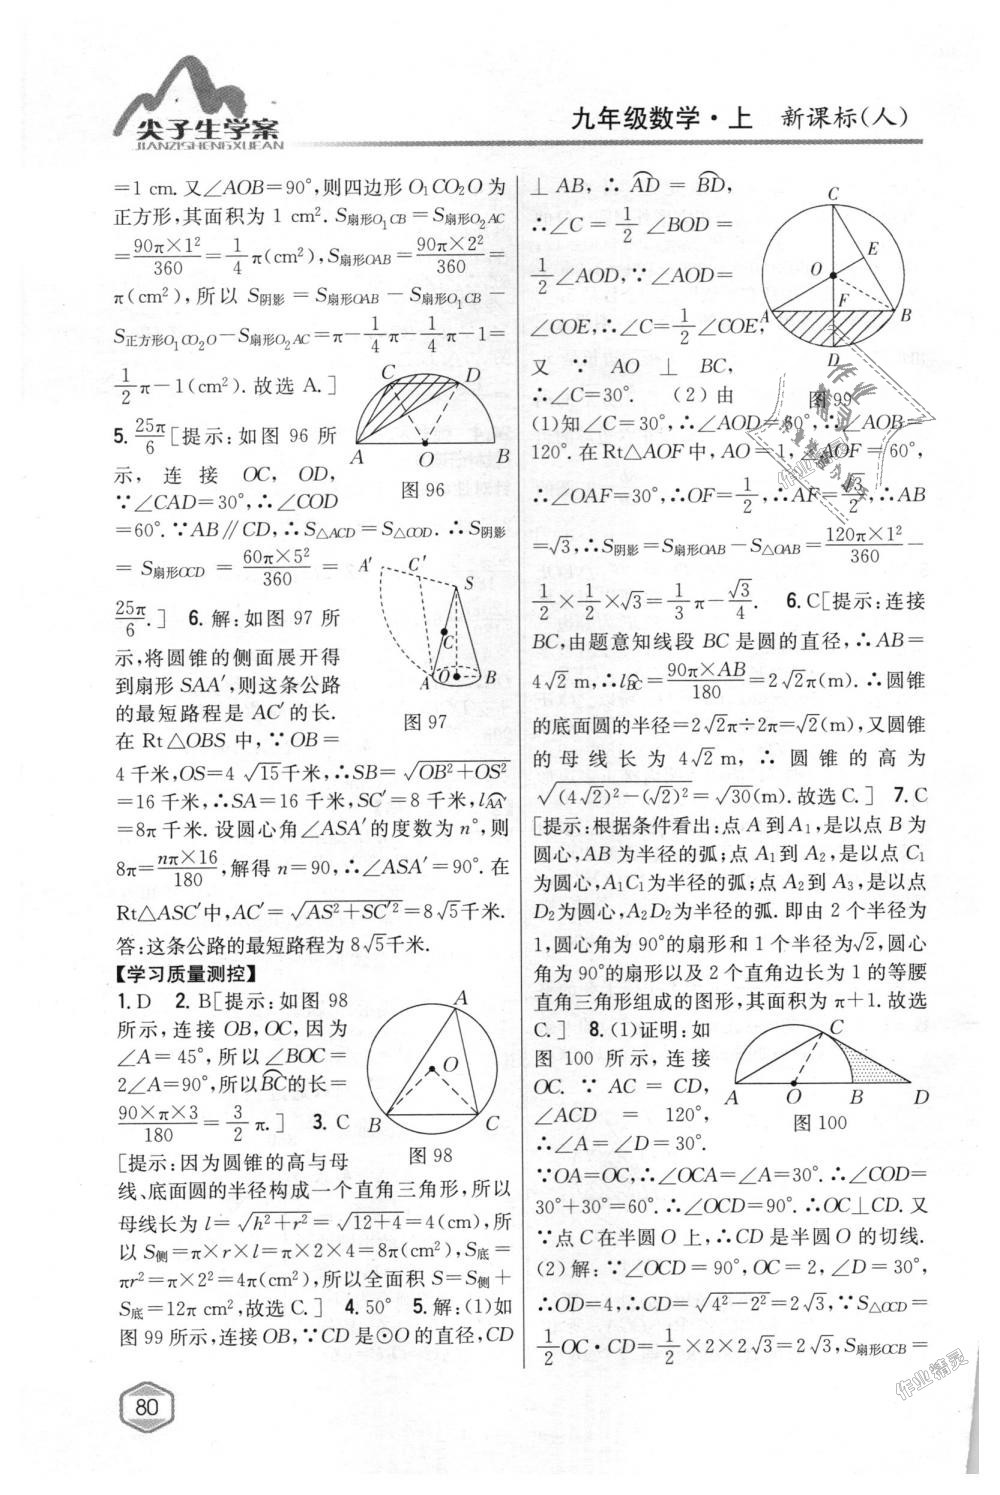 尖子生学案
JIANZISHENGXUEAN
九年级数学·上 新课标(人)
=1 cm. 又∠AOB=90°,则四边形O₁CO₂O为
正方形,其面积为1 cm². S扇形O₁CB=S扇形O₂AC
=90π×1²/360=1/4π(cm²),S扇形OAB=90π×2²/360=
π(cm²),所以 S阴影=S扇形OAB-S扇形O₁CB-
S正方形O₁CO₂O-S扇形O₂AC=π-1/4π-1/4π-1=
1/2π-1(cm²). 故选 A.]
5. 25π/6[提示:如图 96 所
示,连接 OC,OD,
∵∠CAD=30°,∴∠COD
=60°. ∵AB∥CD,∴S△ACD=S△COD. ∴S阴影
=S扇形OCD=60π×5²/360=
25π/6.] 6. 解:如图 97 所
示,将圆锥的侧面展开得
到扇形 SAA′,则这条公路
的最短路程是 AC′的长.
在 Rt△OBS 中,∵OB=
4千米,OS=4√15千米,∴SB=√(OB²+OS²)
=16千米,∴SA=16千米,SC′=8千米,l⌒AA′
=8π千米. 设圆心角∠ASA′的度数为 n°,则
8π=nπ×16/180,解得 n=90,∴∠ASA′=90°. 在
Rt△ASC′中,AC′=√(AS²+SC′²)=8√5千米.
答:这条公路的最短路程为 8√5千米.
【学习质量测控】
1. D 2. B[提示:如图 98
所示,连接 OB,OC,因为
∠A=45°,所以∠BOC=
2∠A=90°,所以⌒BC的长=
90×π×3/180=3/2π.] 3. C
[提示:因为圆锥的高与母
线、底面圆的半径构成一个直角三角形,所以
母线长为 l=√(h²+r²)=√(12+4)=4(cm),所
以 S侧=π×r×l=π×2×4=8π(cm²),S底=
πr²=π×2²=4π(cm²),所以全面积 S=S侧+
S底=12π cm²,故选 C.] 4. 50° 5. 解:(1)如
图 99 所示,连接 OB,∵CD 是⊙O 的直径,CD
C
D
A
O
B
图 96
A′
C′
S
C
A
O
B
图 97
A
O
B
C
图 98
⊥AB,∴⌒AD=⌒BD,
∴∠C=1/2∠BOD=
1/2∠AOD,∵∠AOD=
∠COE,∴∠C=1/2∠COE,
又 ∵ AO ⊥ BC,
∴∠C=30°. (2)由
(1)知∠C=30°,∴∠AOD=60°,∴∠AOB=
120°. 在 Rt△AOF 中,AO=1,∠AOF=60°,
∴∠OAF=30°,∴OF=1/2,∴AF=√3/2,∴AB
=√3,∴S阴影=S扇形OAB-S△OAB=120π×1²/360-
1/2×1/2×√3=1/3π-√3/4. 6. C[提示:连接
BC,由题意知线段 BC 是圆的直径,∴AB=
4√2 m,∴l⌒BC=90π×AB/180=2√2π(m). ∴圆锥
的底面圆的半径=2√2π÷2π=√2(m),又圆锥
的母线长为 4√2 m,∴圆锥的高为
√((4√2)²-(√2)²)=√30(m). 故选 C.] 7. C
[提示:根据条件看出:点 A 到 A₁,是以点 B 为
圆心,AB 为半径的弧;点 A₁到 A₂,是以点 C₁
为圆心,A₁C₁为半径的弧;点 A₂到 A₃,是以点
D₂为圆心,A₂D₂为半径的弧. 即由 2 个半径为
1,圆心角为 90°的扇形和 1 个半径为√2,圆心
角为 90°的扇形以及 2 个直角边长为 1 的等腰
直角三角形组成的图形,其面积为 π+1. 故选
C.] 8. (1)证明:如
图 100 所示,连接
OC. ∵ AC = CD,
∠ACD = 120°,
∴∠A=∠D=30°.
∵OA=OC,∴∠OCA=∠A=30°. ∴∠COD=
30°+30°=60°. ∴∠OCD=90°. ∴OC⊥CD. 又
∵点 C 在半圆 O 上,∴CD 是半圆 O 的切线.
(2)解:∵∠OCD=90°,OC=2,∠D=30°,
∴OD=4,∴CD=√(4²-2²)=2√3,∵S△OCD=
1/2OC·CD=1/2×2×2√3=2√3,S扇形OCB=
C
E
O
F
A
B
D
图 99
C
A
O
B
D
图 100
作业精灵
80